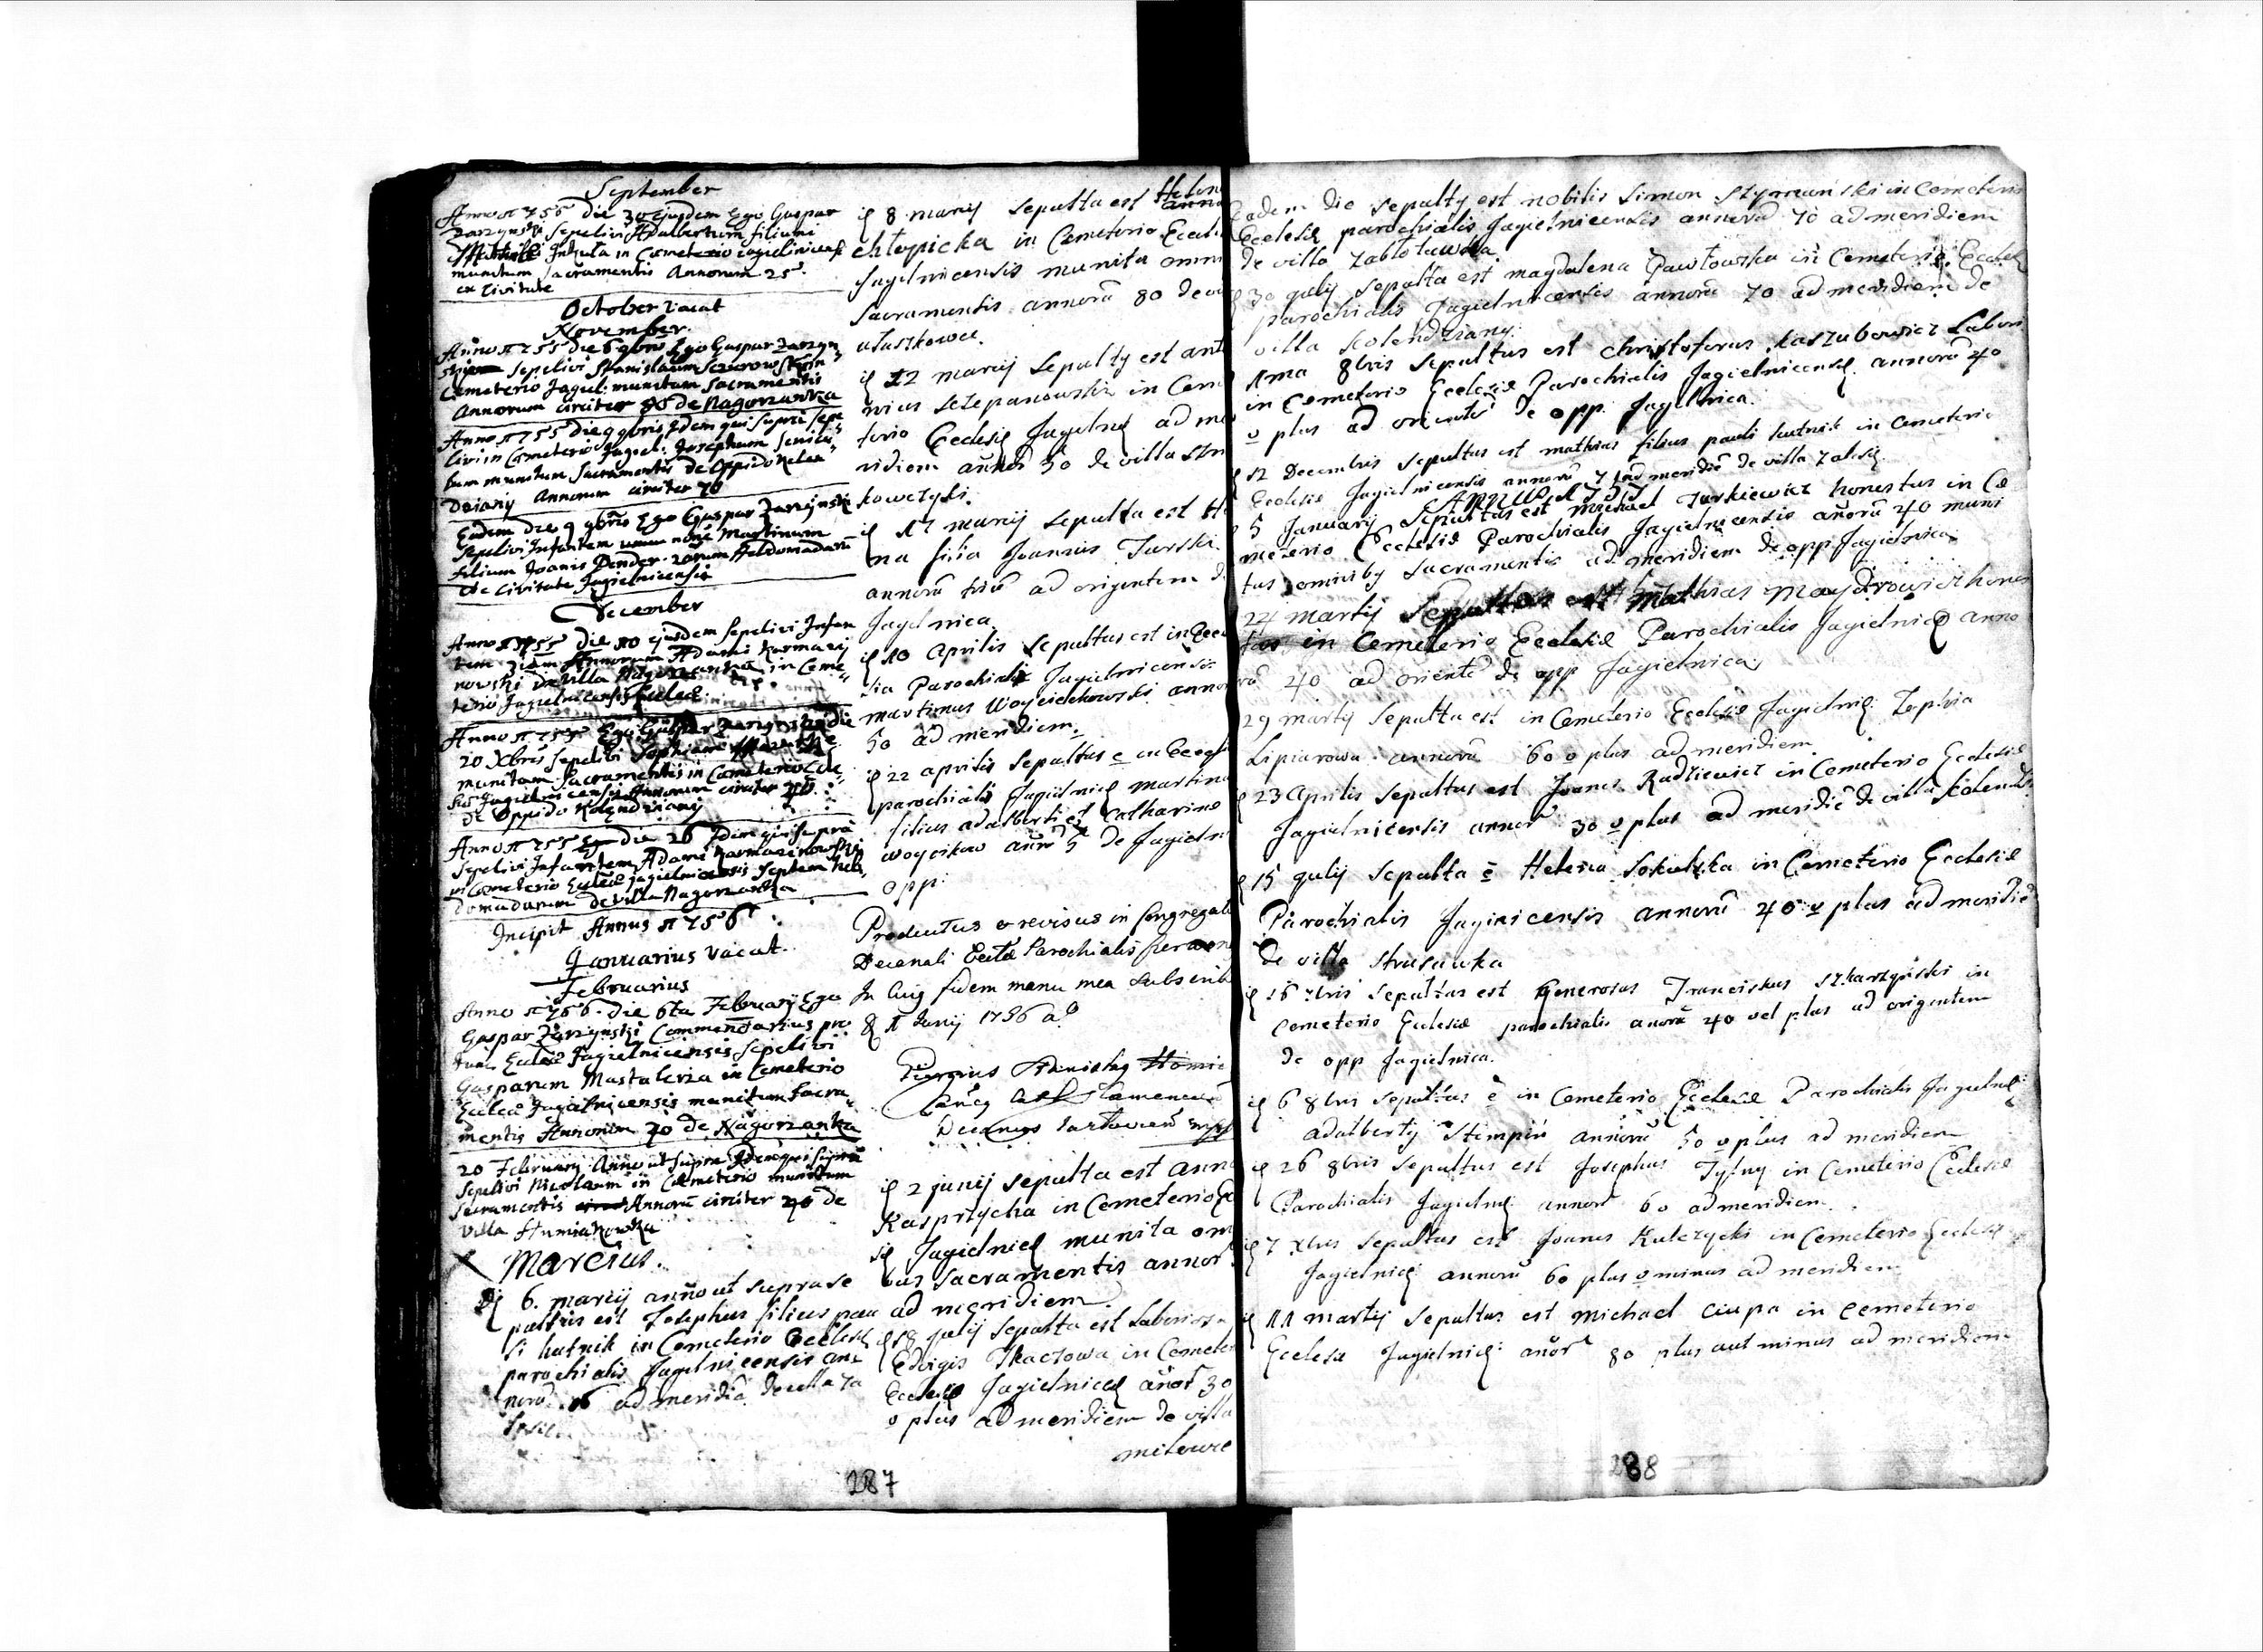 September
Anno 1755 die 30 ejusdem Ego Gaspar
Zarzynski Sepelivi Adalbertum filium
in Cemeterio Jagielnicensi
munitum Sacramentis Annorum 25.
ex Civitate
October vacat
November.
Anno 1755 die 6 9bris Ego Gaspar Zarzyn
ski Sepelivi Stanislaum in
Cemeterio Jagiel: munitum Sacramentis
Annorum circiter 80 de Nagorzanka
Anno 1755 die 9 9bris Idem qui supra sepe
livi in Cemeterio Jagiel: Josephum
munitum Sacramentis de Oppido Kolen
dziany Annorum circiter 70
Eadem die 9 9bris Ego Gaspar Zarzynski
Sepelivi Infantem noṁe Martinum
filium Joanis Bender 2arum Hebdomadarũ
de Civitate Jagielnicensi
December
Anno 1755 die 10 ejusdem sepelivi Infan
tem Annorum Adami Karmazy
nowski de Villa Nagorzanka in Ceme
terio Jagielnicensis Eccleæ
Anno 1755 Ego Gaspar Zarzynski die
20 Xbris sepelivi Sophiam
munitam Sacramentis in Cemeterio
Jagielnicensis Annorum circiter 40
de Oppido Kolendziany
Anno 1755 die 26 Idem qui supra
Sepelivi Infantem Adami Karmazinowski
in Cemeterio Eccleæ Jagielnicensis Septem heb
domadarum de villa Nagorzanka
Incipit Annus 1756
Januarius vacat.
Februarius
Anno 1756 die 6ta Februarij Ego
Gaspar Zarzynski Commendarius pro
tunc Eccleæ Jagielnicensis Sepelivi
Gasparum Mastalerza in Cemeterio
Eccleæ Jagielnicensis munitum Sacra
mentis Annorum 70 de Nagorzanka
20 February Anno ut supra Idem qui supra
sepelivi Nicolaum in Cemeterio munitum
Sacramentis Annorũ circiter 40 de
villa
Marcius.
6. marcij anno ut supra se
pultus est Josephus filius pau
li hutnik in Cemeterio Ecclesiæ
parochialis Jagielnicensis an
norũ 16 ad meridiẽ de villa Za
lesie
8 marcij sepulta est Helena
chłopicka in Cemeterio Eccle
Jagielnicensis munita omni
Sacramentis annorũ 80 de
ułaszkowce.
12 marcij sepultus est anto
nius Szczepanowski in Ceme
terio Ecclesiæ Jagielnic ad me
ridiem annorũ 50 de villa
kowczyki.
17 marcij sepulta est
na filia Joannis Turski
annorũ triũ ad origentem de
Jagielnica
10 Aprilis sepultus est in Eccle
sia Parochiali Jagielnicensis
martinus Woyciechowski anno
50 ad meridiem.
22 aprilis sepultus ẽ in Eccle
parochialis Jagielnic martinus
filius adalberti et Catharinæ
woycikow annor 5 de Jagieln
opp:
Productus & revisus in Congregat
Decanali Ecclæ Parochialis
In cujus fidem manu mea subscrib
1 Junij 1756 aº
2 junij sepulta est anna
Kasprzycka in Cemeterio Ec
Jagielnic munita om
bus sacramentis annor
ad meridiem.
18 julij sepulta est Laboriosa
Edvigis Tkaczowa in Cemeter
Ecclesiæ Jagielnic añor 30
v plus ad meridiem de villa
milowce
287
Eadem die sepultus est nobilis Simon Szymanski in Cemeterio
Ecclesiæ parochialis Jagielnicensis annorũ 70 ad meridiem
de villa Zabłotawka.
30 julij sepulta est magdalena Pawłowska in Cemeterio Eccles
parochialis Jagielnicensis annorũ 70 ad meridiem de
villa Kolendziany.
1ma 8bris sepultus est Christoforus Kaszubowicz Labori
in Cemeterio Ecclesiæ Parochialis Jagielnicensis annorũ 40
v plus ad orientẽ de opp. Jagielnica.
12 Decembris sepultus est mathias filius pauli hutnik in Cemeterio
Ecclesiæ Jagielnicensis annorũ 7 ad meridiẽ de villa Zalesie
Annus 1757
5 January Sepultus est Michael Jurkiewicz honestus in Ce
meterio Ecclesiæ Parochialis Jagielnicensis añorũ 40 muni
tus omnibus sacramentis ad meridiem de opp Jagielnica
24 martij Sepultus est Mathias Maydrowicz hones
tus in Cemeterio Ecclesiæ Parochialis Jagielnic anno
rũ 40 ad orientẽ de opp Jagielnica
29 martij Sepulta est in Cemeterio Ecclesiæ Jagielnic: Zophia
Lipiarowa annorũ 60 v plus ad meridiem
23 Aprilis Sepultus est Joanes Radziewicz in Cemeterio Ecclesiæ
Jagielnicensis annor 30 v plus ad meridiẽ de villa Kolendz
15 julij sepulta ẽ Helena Sokulska in Cemeterio Ecclesiæ
Parochialis Jaginicensis annorũ 40 v plus ad meridiẽ
de villa Strusuwka
16 7bris sepultus est Generosus Franciskus Szkarzynski in
Cemeterio Ecclesiæ parochialis anorũ 40 vel plus ad origentem
de opp Jagielnica.
6 8bris sepultus ẽ in Cemeterio Ecclesiæ Parochialis Jagielnic
adalbertus Stempin annorũ 50 v plus ad meridiem
26 8bris sepultus est Josephus Tylny in Cemeterio Ecclesiæ
Parochialis Jagielnic annor 60 ad meridiem.
7 Xbris sepultus est Joanes Kulczycki in Cemeterio Ecclesiæ
Jagielnic annorũ 60 plus v minus ad meridiem
11 martij sepultus est michael Ciupa in Cemeterio
Ecclesiæ Jagielnic: añor 80 plus aut minus ad meridiem
288